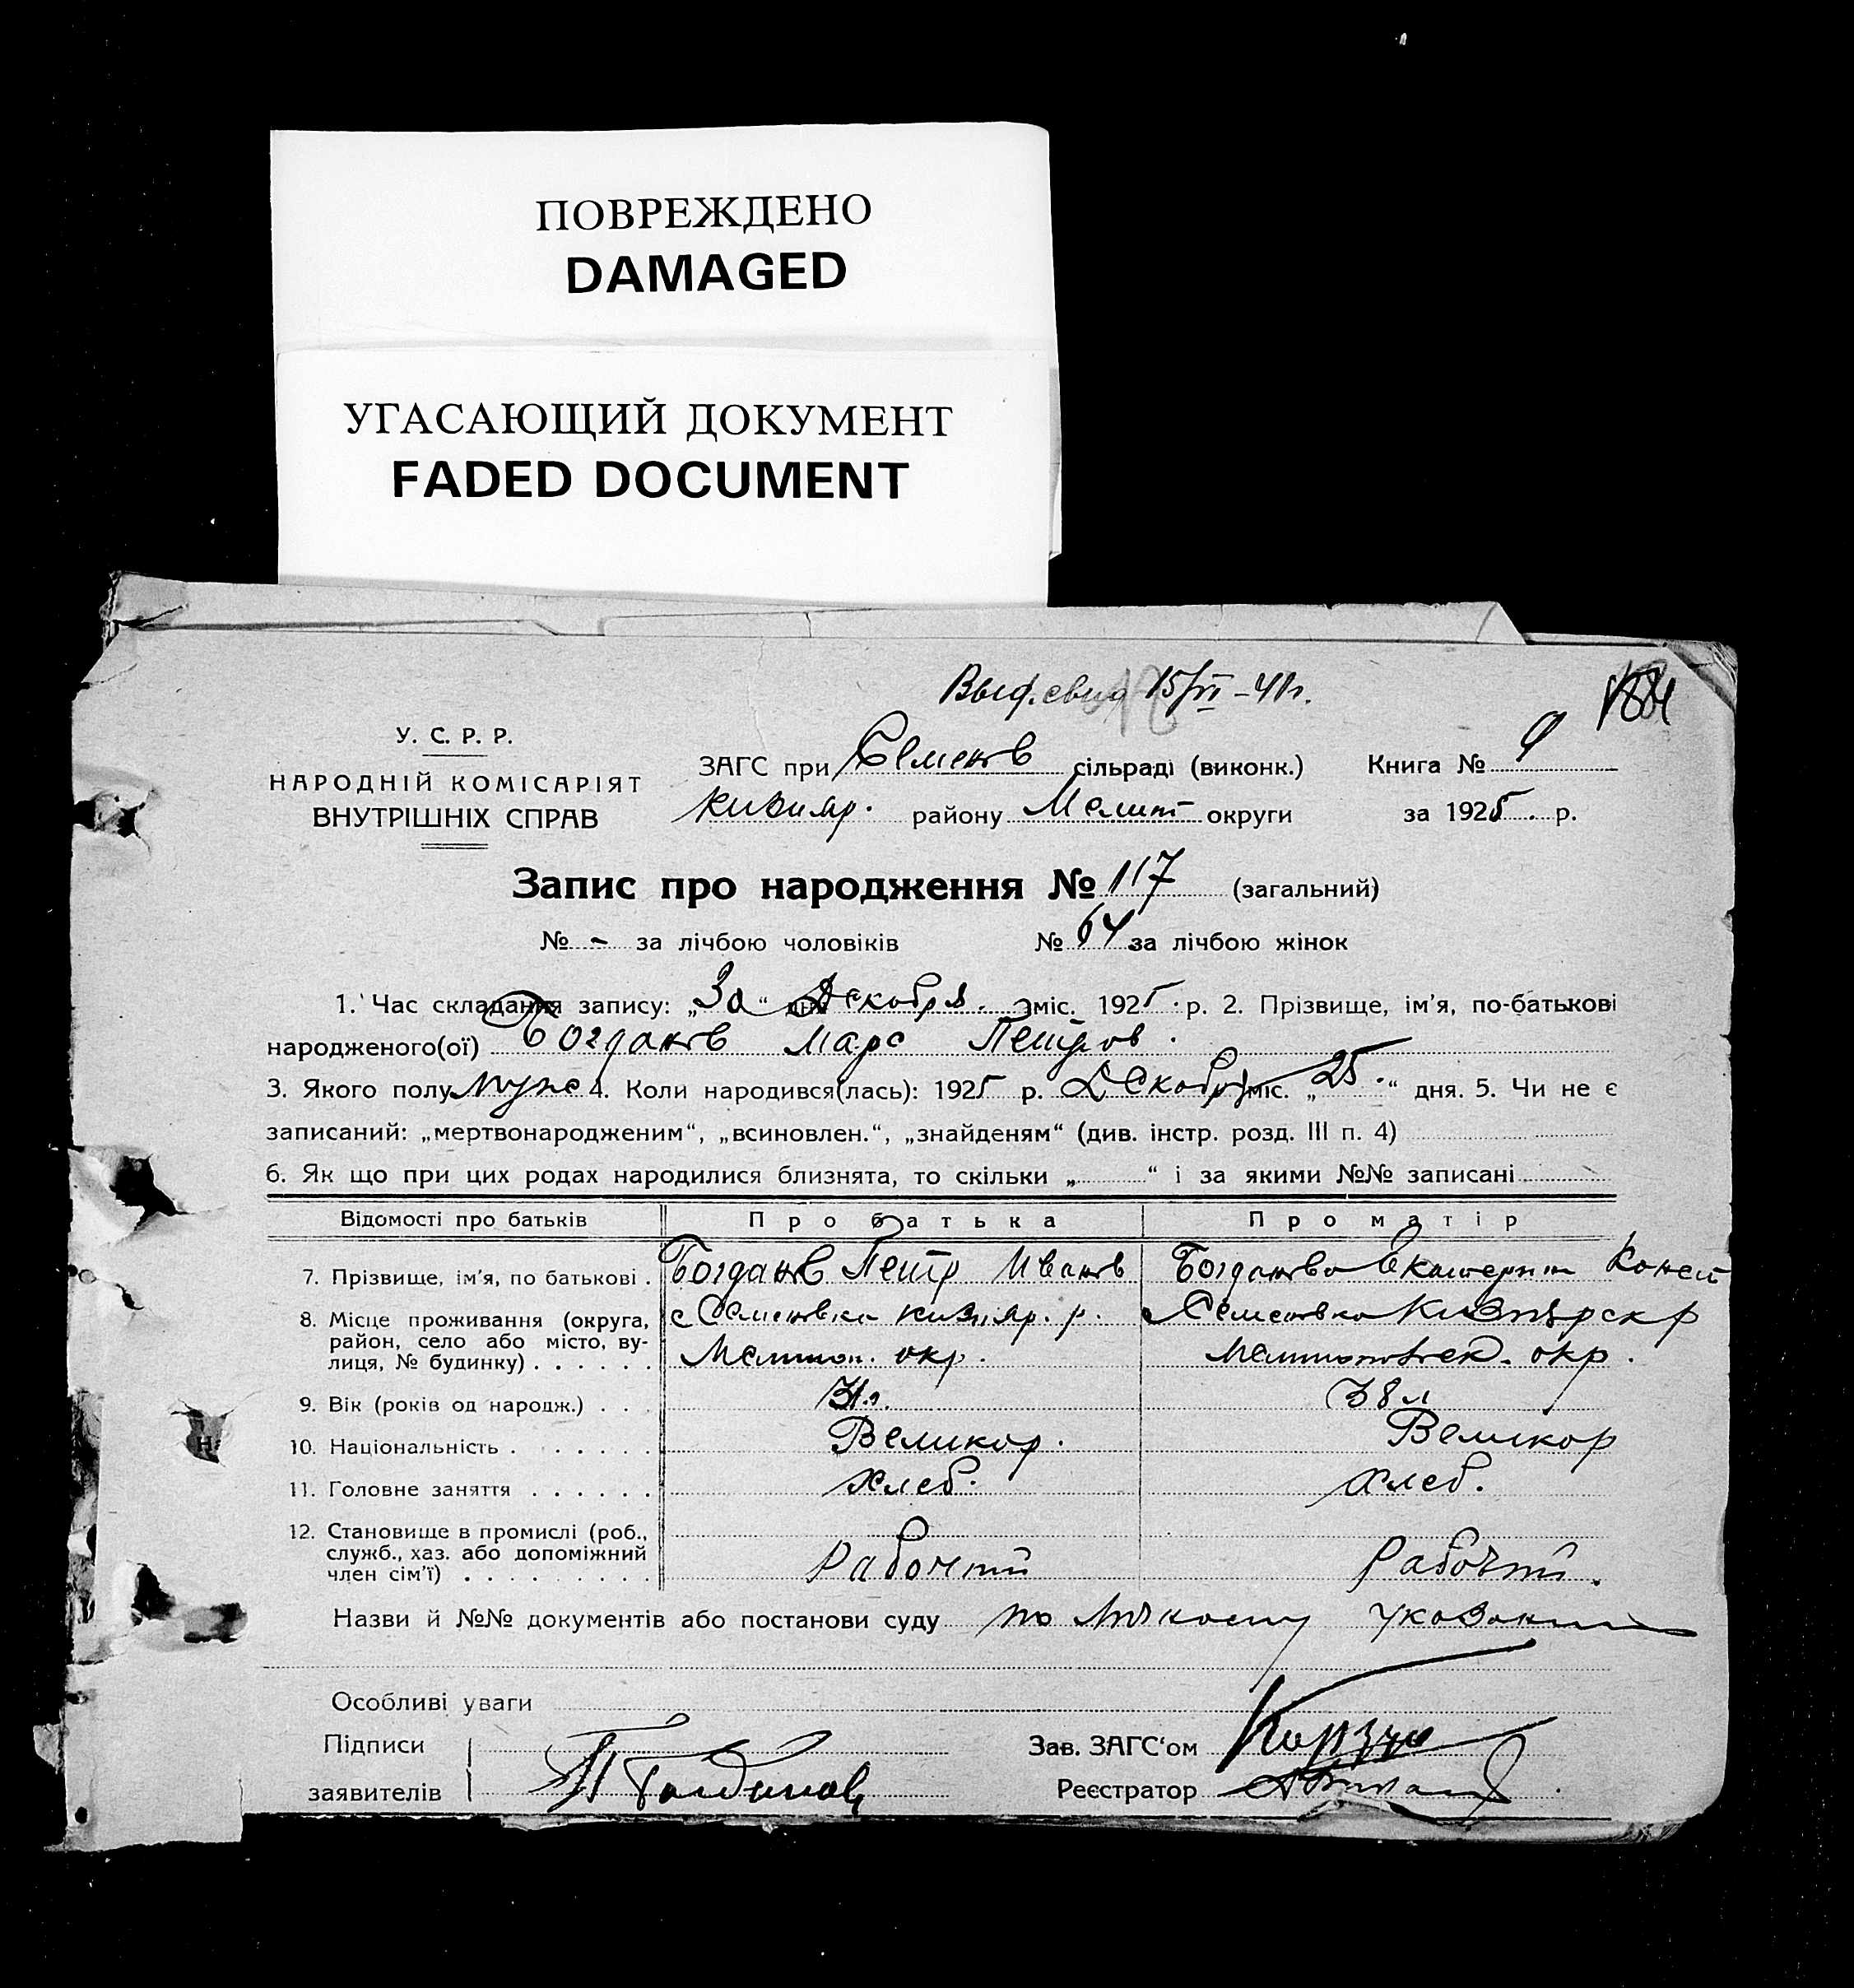 ПОВРЕЖДЕНО
DAMAGED
УГАСАЮЩИЙ ДОКУМЕНТ
FADED DOCUMENT
15/VI - 41 г.
У. С. Р. Р.
НАРОДНІЙ КОМІСАРІЯТ
ВНУТРІШНІХ СПРАВ
ЗАГС при Семенов сільраді (виконк.) Книга №
Кизияр. району Мелит округи за 1925 р.
Запис про народження № 117 (загальний)
№ - за лічбою чоловіків № 64 за лічбою жінок
1. Час складання запису: „30“ дня Декабря міс. 1925 р. 2. Прізвище, ім'я, по-батькові
народженого(ої) Богданов Марс Петров.
3. Якого полу муж 4. Коли народився(лась): 1925 р. Декабря міс. „25“ дня. 5. Чи не є
записаний: „мертвонародженим“, „всиновлен.“, „знайденям“ (див. інстр. розд. III п. 4)
6. Як що при цих родах народилися близнята, то скільки „ “ і за якими №№ записані
Відомості про батьків Про батька Про матір
7. Прізвище, ім'я, по батькові . Богданов Петр Иванов Богданова Екатерина Конст
8. Місце проживання (округа, с Семеновка Кизияр. р. с Семеновка Кизиярск р
район, село або місто, ву-
лиця, № будинку) . . . . . . Мелитоп. окр. Мелитопольск. окр.
9. Вік (років од народж.) . . . 31 л. 38 л
10. Національність . . . . . . . Великор. Великор
11. Головне заняття . . . . . . Хлеб. Хлеб.
12. Становище в промислі (роб.,
служб., хаз. або допоміжний
член сім'ї) . . . . . . . . . Рабочий Рабочий.
Назви й №№ документів або постанови суду по личному указанию
Особливі уваги
Підписи
заявителів П Богданов
Зав. ЗАГС'ом
Реєстратор